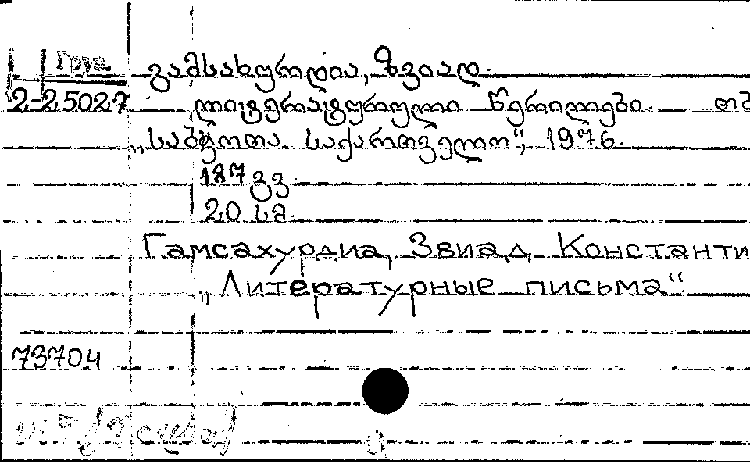 გამსახურდია, ზვიად.
2-25027 ლიტერატურული წერილები. თბ
„საბჭოთა საქართველო“, 1976.
187 გვ.
20 სმ.
Гамсахурдиа, Звиад Константи
„Литературные письма“
73704